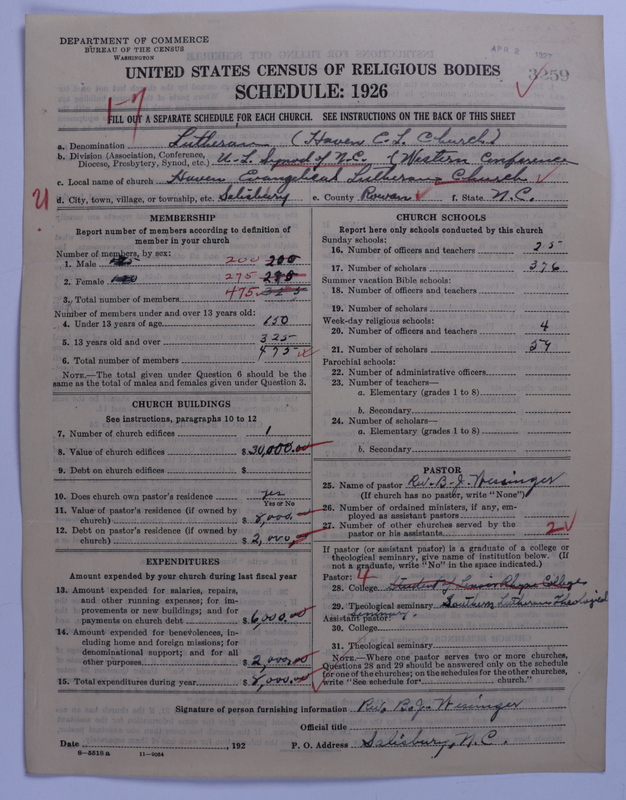 DEPARTMENT OF COMMERCE
BUREAU OF THE CENSUS
WASHINGTON
APR 2 1927
3259
UNITED STATES CENSUS OF RELIGIOUS BODIES
SCHEDULE: 1926
1-7
FILL OUT A SEPARATE SCHEDULE FOR EACH CHURCH. SEE INSTRUCTIONS ON THE BACK OF THIS SHEET
a. Denomination Lutheran (Haven E. L. Church)
b. Division (Association, Conference, Diocese, Presbytery, Synod, etc.) U-L Synod of N.C. (Western Conference
c. Local name of church Haven Evangelical Lutheran Church
U d. City, town, village, or township, etc. Salisbury e. County Rowan f. State N.C.
MEMBERSHIP
Report number of members according to definition of
member in your church
Number of members, by sex:
1. Male 200 200
2. Female 275
3. Total number of members 475
Number of members under and over 13 years old:
4. Under 13 years of age 150
5. 13 years old and over 325
6. Total number of members 475
NOTE.—The total given under Question 6 should be
same as the total of males and females given under Question 3.
CHURCH BUILDINGS
See instructions, paragraphs 10 to 12
7. Number of church edifices 1
8. Value of church edifices $ 30,000.00
9. Debt on church edifices $
10. Does church own pastor's residence yes
Yes or No
11. Value of pastor's residence (if owned by
church) $ 8,000.
12. Debt on pastor's residence (if owned by
church) $ 2,000,
EXPENDITURES
Amount expended by your church during last fiscal year
13. Amount expended for salaries, repairs,
and other running expenses; for im-
provements or new buildings; and for
payments on church debt $ 6,000.00
14. Amount expended for benevolences, in-
cluding home and foreign missions; for
denominational support; and for all
other purposes $ 2,000.00
15. Total expenditures during year $ 8,000.00
CHURCH SCHOOLS
Report here only schools conducted by this church
Sunday schools:
16. Number of officers and teachers 25
17. Number of scholars 376
Summer vacation Bible schools:
18. Number of officers and teachers
19. Number of scholars
Week-day religious schools:
20. Number of officers and teachers 4
21. Number of scholars 54
Parochial schools:
22. Number of administrative officers
23. Number of teachers—
a. Elementary (grades 1 to 8)
b. Secondary
24. Number of scholars—
a. Elementary (grades 1 to 8)
b. Secondary
PASTOR
25. Name of pastor Rev. B. J. Wessinger
(If church has no pastor, write "None")
26. Number of ordained ministers, if any, em-
ployed as assistant pastors
27. Number of other churches served by the
pastor or his assistants
If pastor (or assistant pastor) is a graduate of a college or
theological seminary, give name of institution below. (If
not a graduate, write "No" in the space indicated.)
Pastor: 4
28. College Student of Lenoir Rhyne College
29. Theological seminary Southern Lutheran Theological
Seminary.
Assistant pastor:
30. College
31. Theological seminary
NOTE.—Where one pastor serves two or more churches,
Questions 28 and 29 should be answered only on the schedule
for one of the churches; on the schedules for the other churches,
write "See schedule for church."
Signature of person furnishing information Rev. B. J. Wessinger
Official title
Date , 192 P. O. Address Salisbury, N.C.
8-5518 a 11-9084